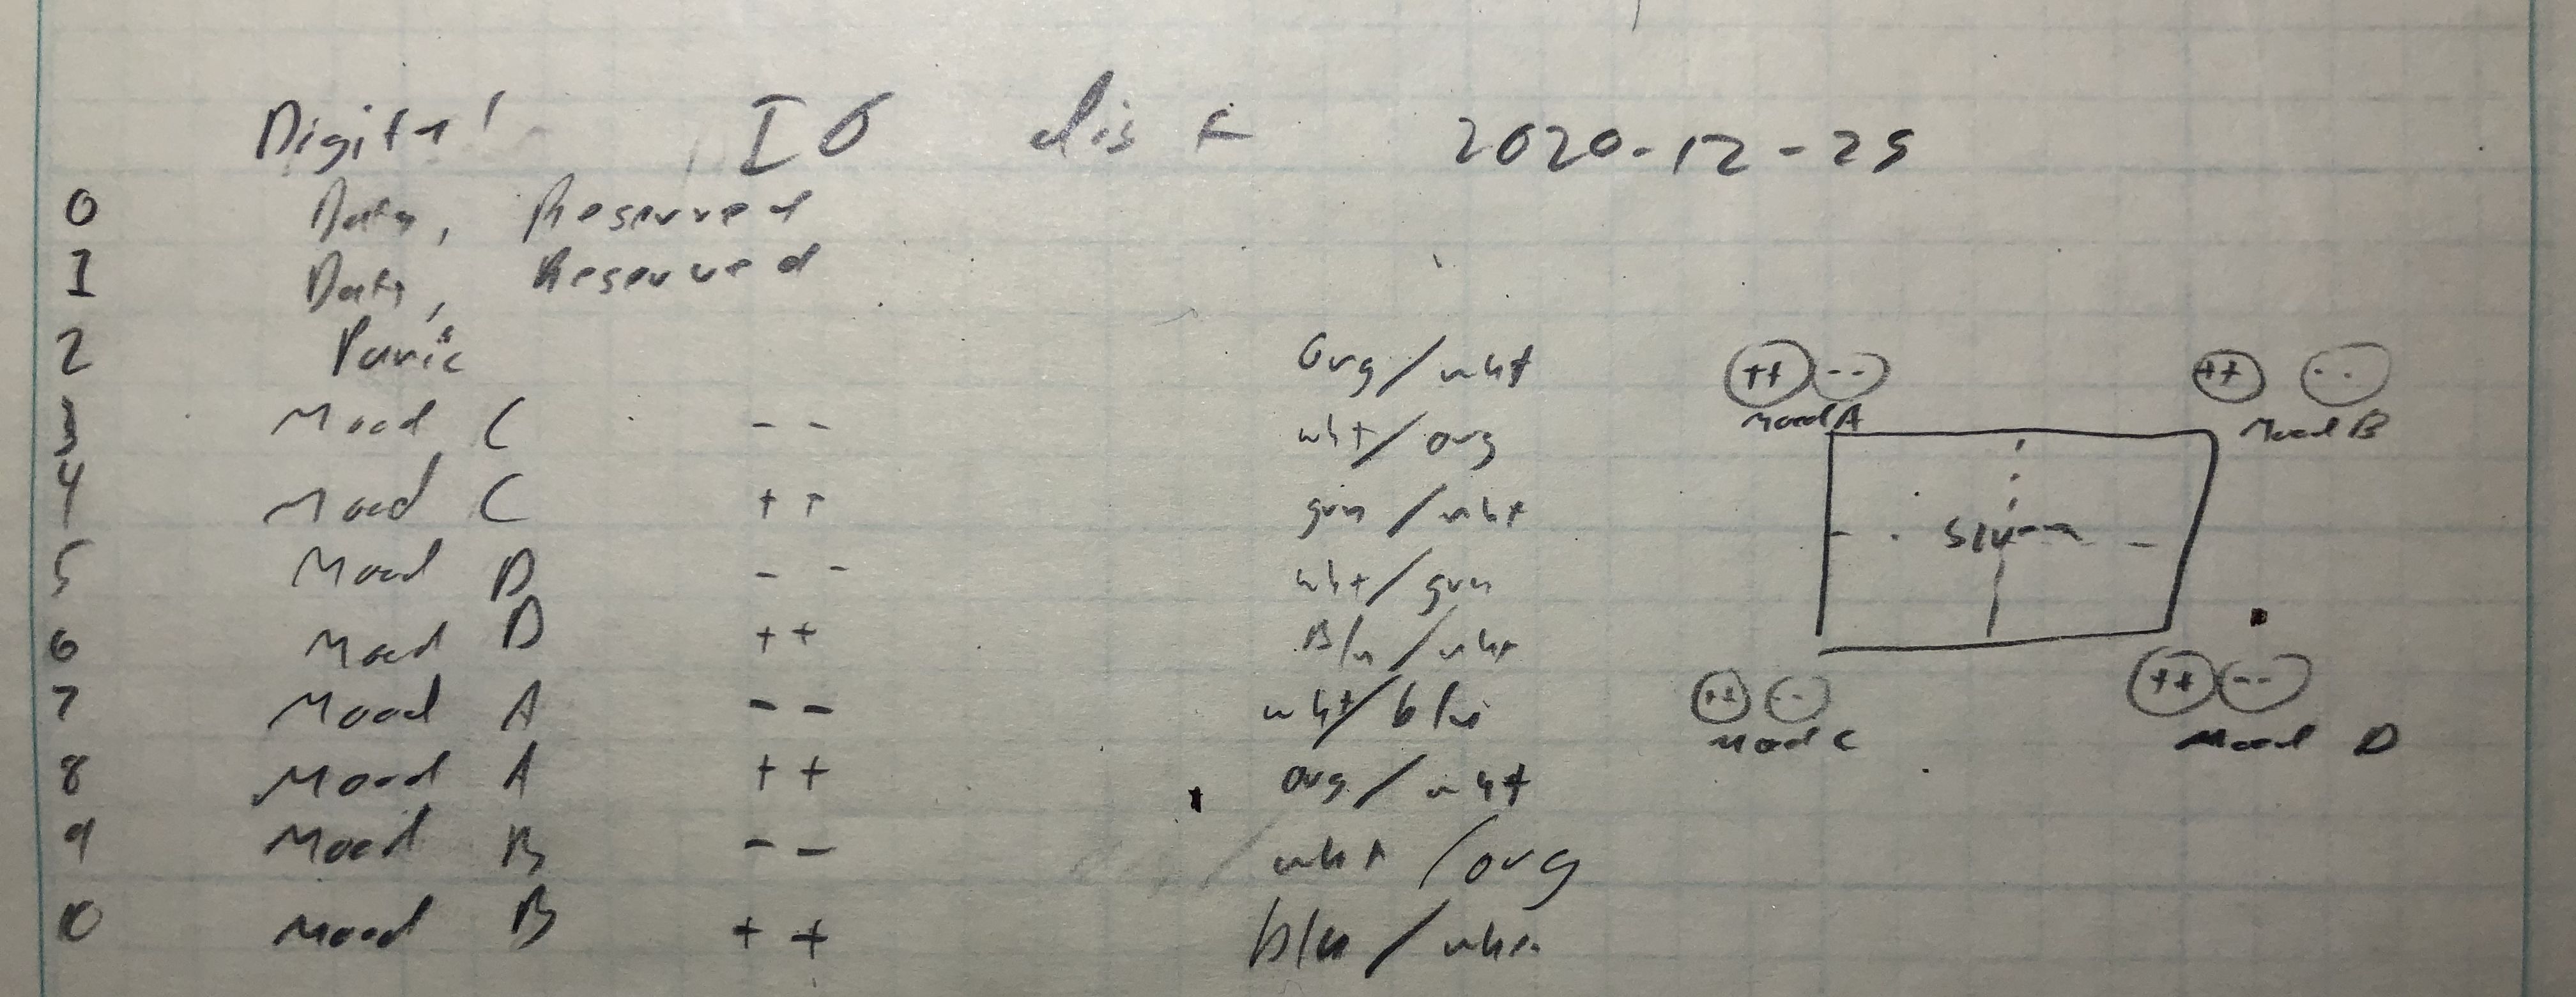 Digital IO list 2020-12-29
0 Data, Reserved
1 Data, Reserved
2 Panic Org/wht
3 Mood C -- wht/org
4 Mood C ++ grn/wht
5 Mood D -- wht/grn
6 Mood D ++ Blu/wht
7 Mood A -- wht/blu
8 Mood A ++ org/wht
9 Mood B -- wht/org
10 Mood B ++ blu/wht
++ --
Mood A
++ --
Mood B
++ --
Mood C
++ --
Mood D